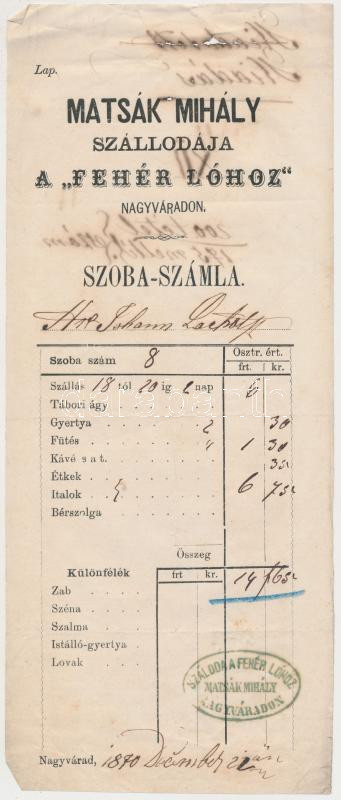 Lap.
MATSÁK MIHÁLY
SZÁLLODÁJA
A „FEHÉR LÓHOZ“
NAGYVÁRADON.
SZOBA-SZÁMLA.
Johann
Szoba szám 8 Osztr. ért.
frt. kr.
Szállás 18 tól 20 ig 2 nap 6
Tábori ágy
Gyertya 2 30
Fűtés " 1 30
Kávé s a t. 35
Étkek
Italok 6 75
Bérszolga
Összeg
Különfélék frt kr. 14
Zab
Széna
Szalma
Istálló-gyertya
Lovak
SZÁLODA A FEHÉR LÓHOZ
MATSÁK MIHÁLY
NAGYVÁRADON
Nagyvárad, 1870 December